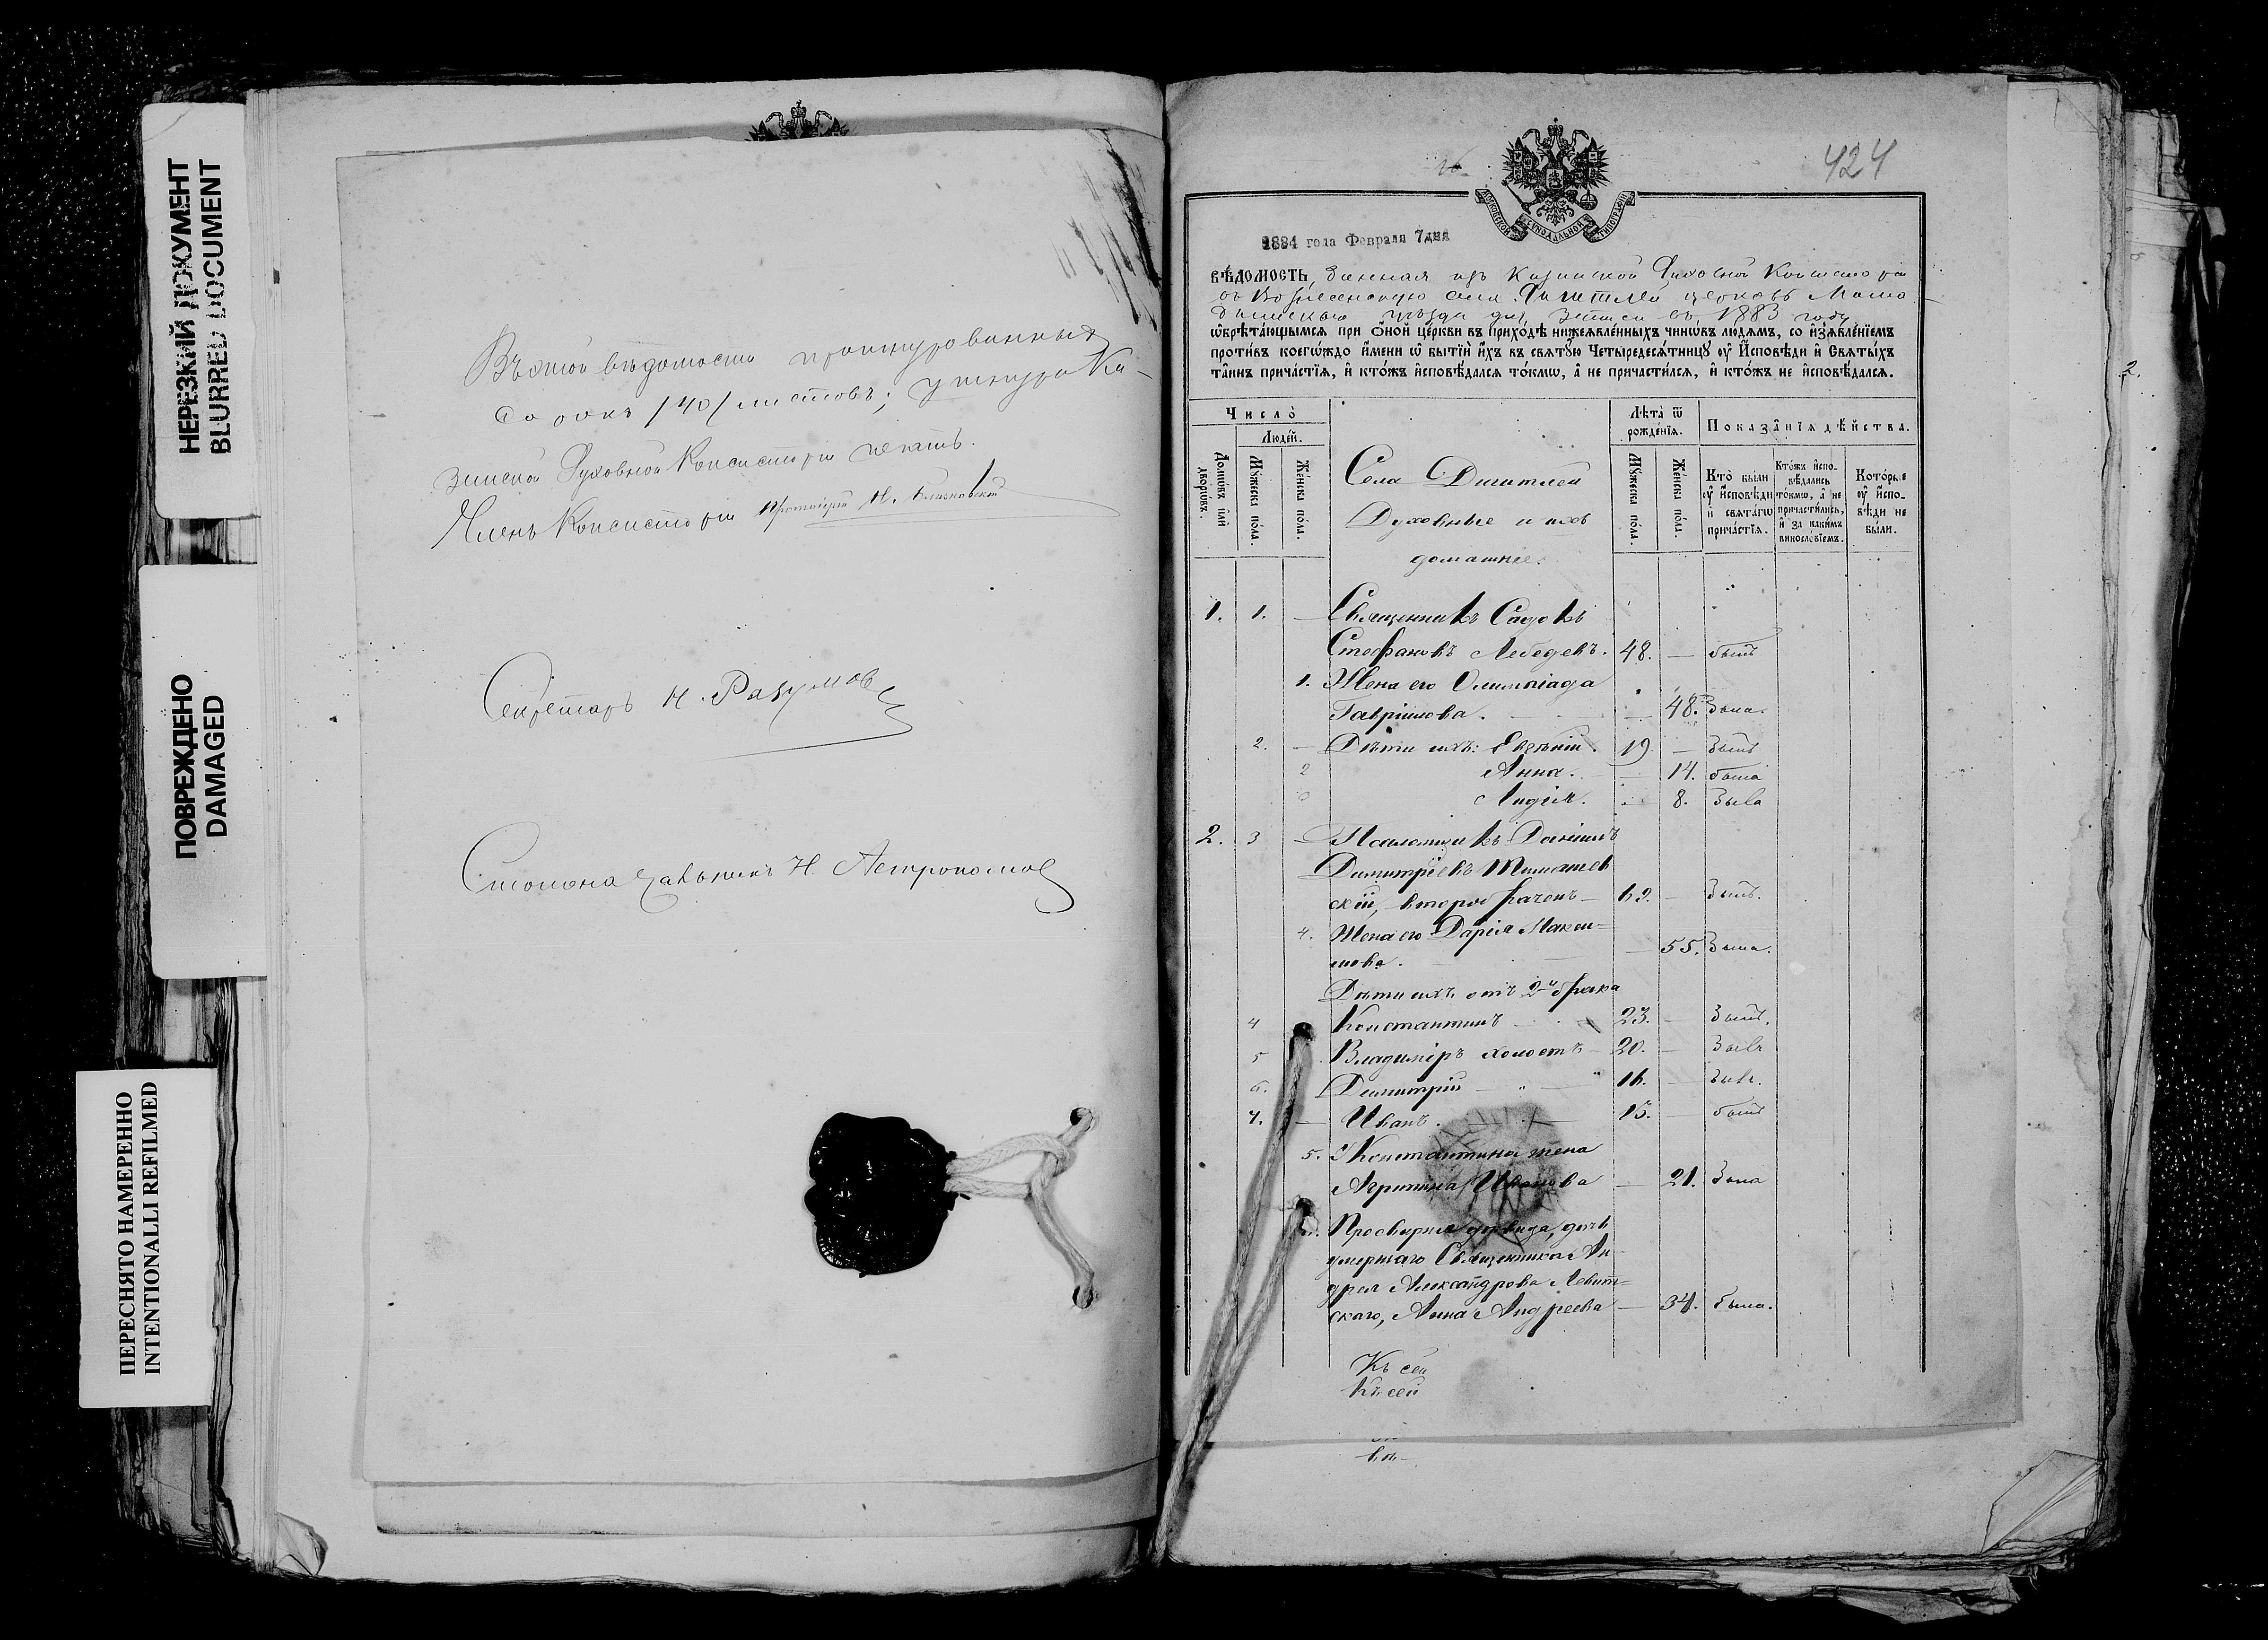 НЕРЕЗКИЙ ДОКУМЕНТ
BLURRED DOCUMENT
ПОВРЕЖДЕНО
DAMAGED
ПЕРЕСНЯТО НАМЕРЕННО
INTENTIONALLI REFILMED
Въ этой вѣдомости прошнурованныхъ
сорокъ /40/ листовъ; у шнура Ка-
занской Духовной Консисторіи печать.
Членъ Консисторіи Протоіерей
Секретарь Н. Разумов
Столоначальникъ Н.
424
МОСКОВСКОЙ СѴНОДАЛЬНОЙ ТИПОГРАФІИ
1884 года Февраля 7 дня
ВѢДОМОСТЬ, данная изъ Казанской Духовной Консисторіи
въ Вознесенскую села церковь Мама-
дышскаго уѣзда для записи въ 1883 году
ѡ҆брѣта́ющымсѧ при Ѻ҆́ной це́ркви въ прихо́дѣ нижеѧвле́нныхъ чинѡ́въ лю́демъ, со и҆з̾ѧвле́нїемъ
проти́въ коегѡ́ждо и҆́мени ѡ҆ бытїѝ и҆́хъ въ свѧтꙋ́ю Четыредесѧ́тницꙋ ᲂу҆ И҆́сповѣди и҆ Свѧты́хъ
та̑инъ причастїѧ, и҆ кто́жъ и҆сповѣ́далсѧ то́кмѡ, а҆ не причасти́лсѧ, и҆ кто́жъ не и҆сповѣ́далсѧ.
Число̀
Люде́й.
Домѡ́въ и҆лѝ дворѡ́въ.
Мꙋ́жеска по́ла.
Же́нска по́ла.
Села
Духовные и ихъ
домашніе.
Лѣта̀ ѿ рожде́нїѧ.
Мꙋ́жеска по́ла.
Же́нска по́ла.
Показа̑нїѧ дѣ́йства.
Кто̀ бы́ли ᲂу҆ и҆́сповѣди и҆ свѧта́гѡ прича́стїѧ.
Кто́жъ и҆сповѣ́дались то́кмѡ, а҆ не причасти́лись, и҆ за каки́мъ винослѡ́вїемъ.
Кото́рые ᲂу҆ и҆́сповѣди не бы́ли.
1. 1. — Священникъ Садокъ
Стефановъ Лебедевъ. 48. — былъ
1. Жена его Олимпіада
Гавріилова. — 48. была.
2. — Дѣти ихъ: Евгеній. 19. — былъ
2 Анна. — 14. была
Лидія. — 8. была
2. 3 — Псаломщикъ Даніилъ
Димитріевъ
скій, второбраченъ — 62. — былъ.
4. Жена его Дарія Макси-
мова. — 55. была.
Дѣти ихъ отъ 2го брака
4 Константинъ 23. — былъ.
5 Владиміръ холостъ — 20. — былъ
6. Димитрій — „ — 16. — былъ.
7. — Иванъ. 15. — былъ
5. Константина жена
Агрипина Иванова — 21. была
Просвирня дѣвица, дочь
умершаго Священника Ан-
дрея Александрова Левит-
скаго, Анна Андреева — 34. была.
Къ сей
Къ сей
2.